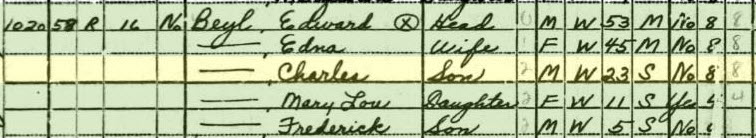 1020 58 R 16 No Beyl, Edward ⓧ Head 0 M W 53 M No 8 8
—— Edna Wife 1 F W 45 M No 8 8
—— Charles Son 2 M W 23 S No 8 8
—— Mary Lou Daughter 2 F W 11 S Yes 5 4
—— Frederick Son M W 5 S No